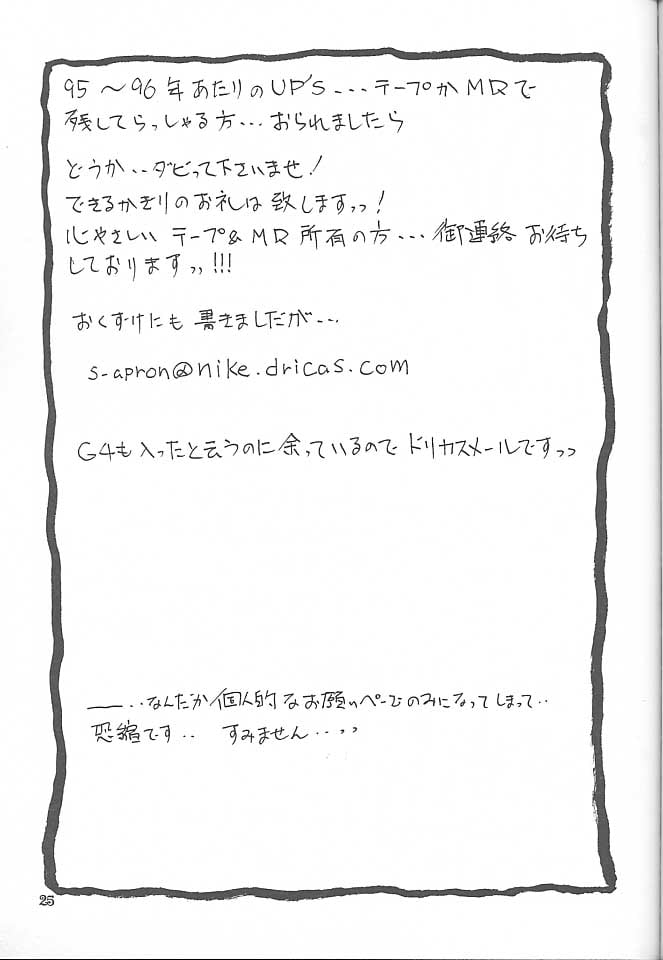 95〜96年あたりのUP'S...テープかMDで
残してらっしゃる方...おられましたら
どうか..ダビって下さいませ!
できるかぎりのお礼は致しますっっ!
心やさしい テープ&MD所有の方...御連絡お待ち
しておりますっっ!!!
おくずけにも書きましたが...
s-apron@nike.dricas.com
G4も入ったと云うのに余っているのでドリカスメールですっっ
――..なんだか個人的なお願いページのみになってしまって..
恐縮です.. すみません..っっ
25